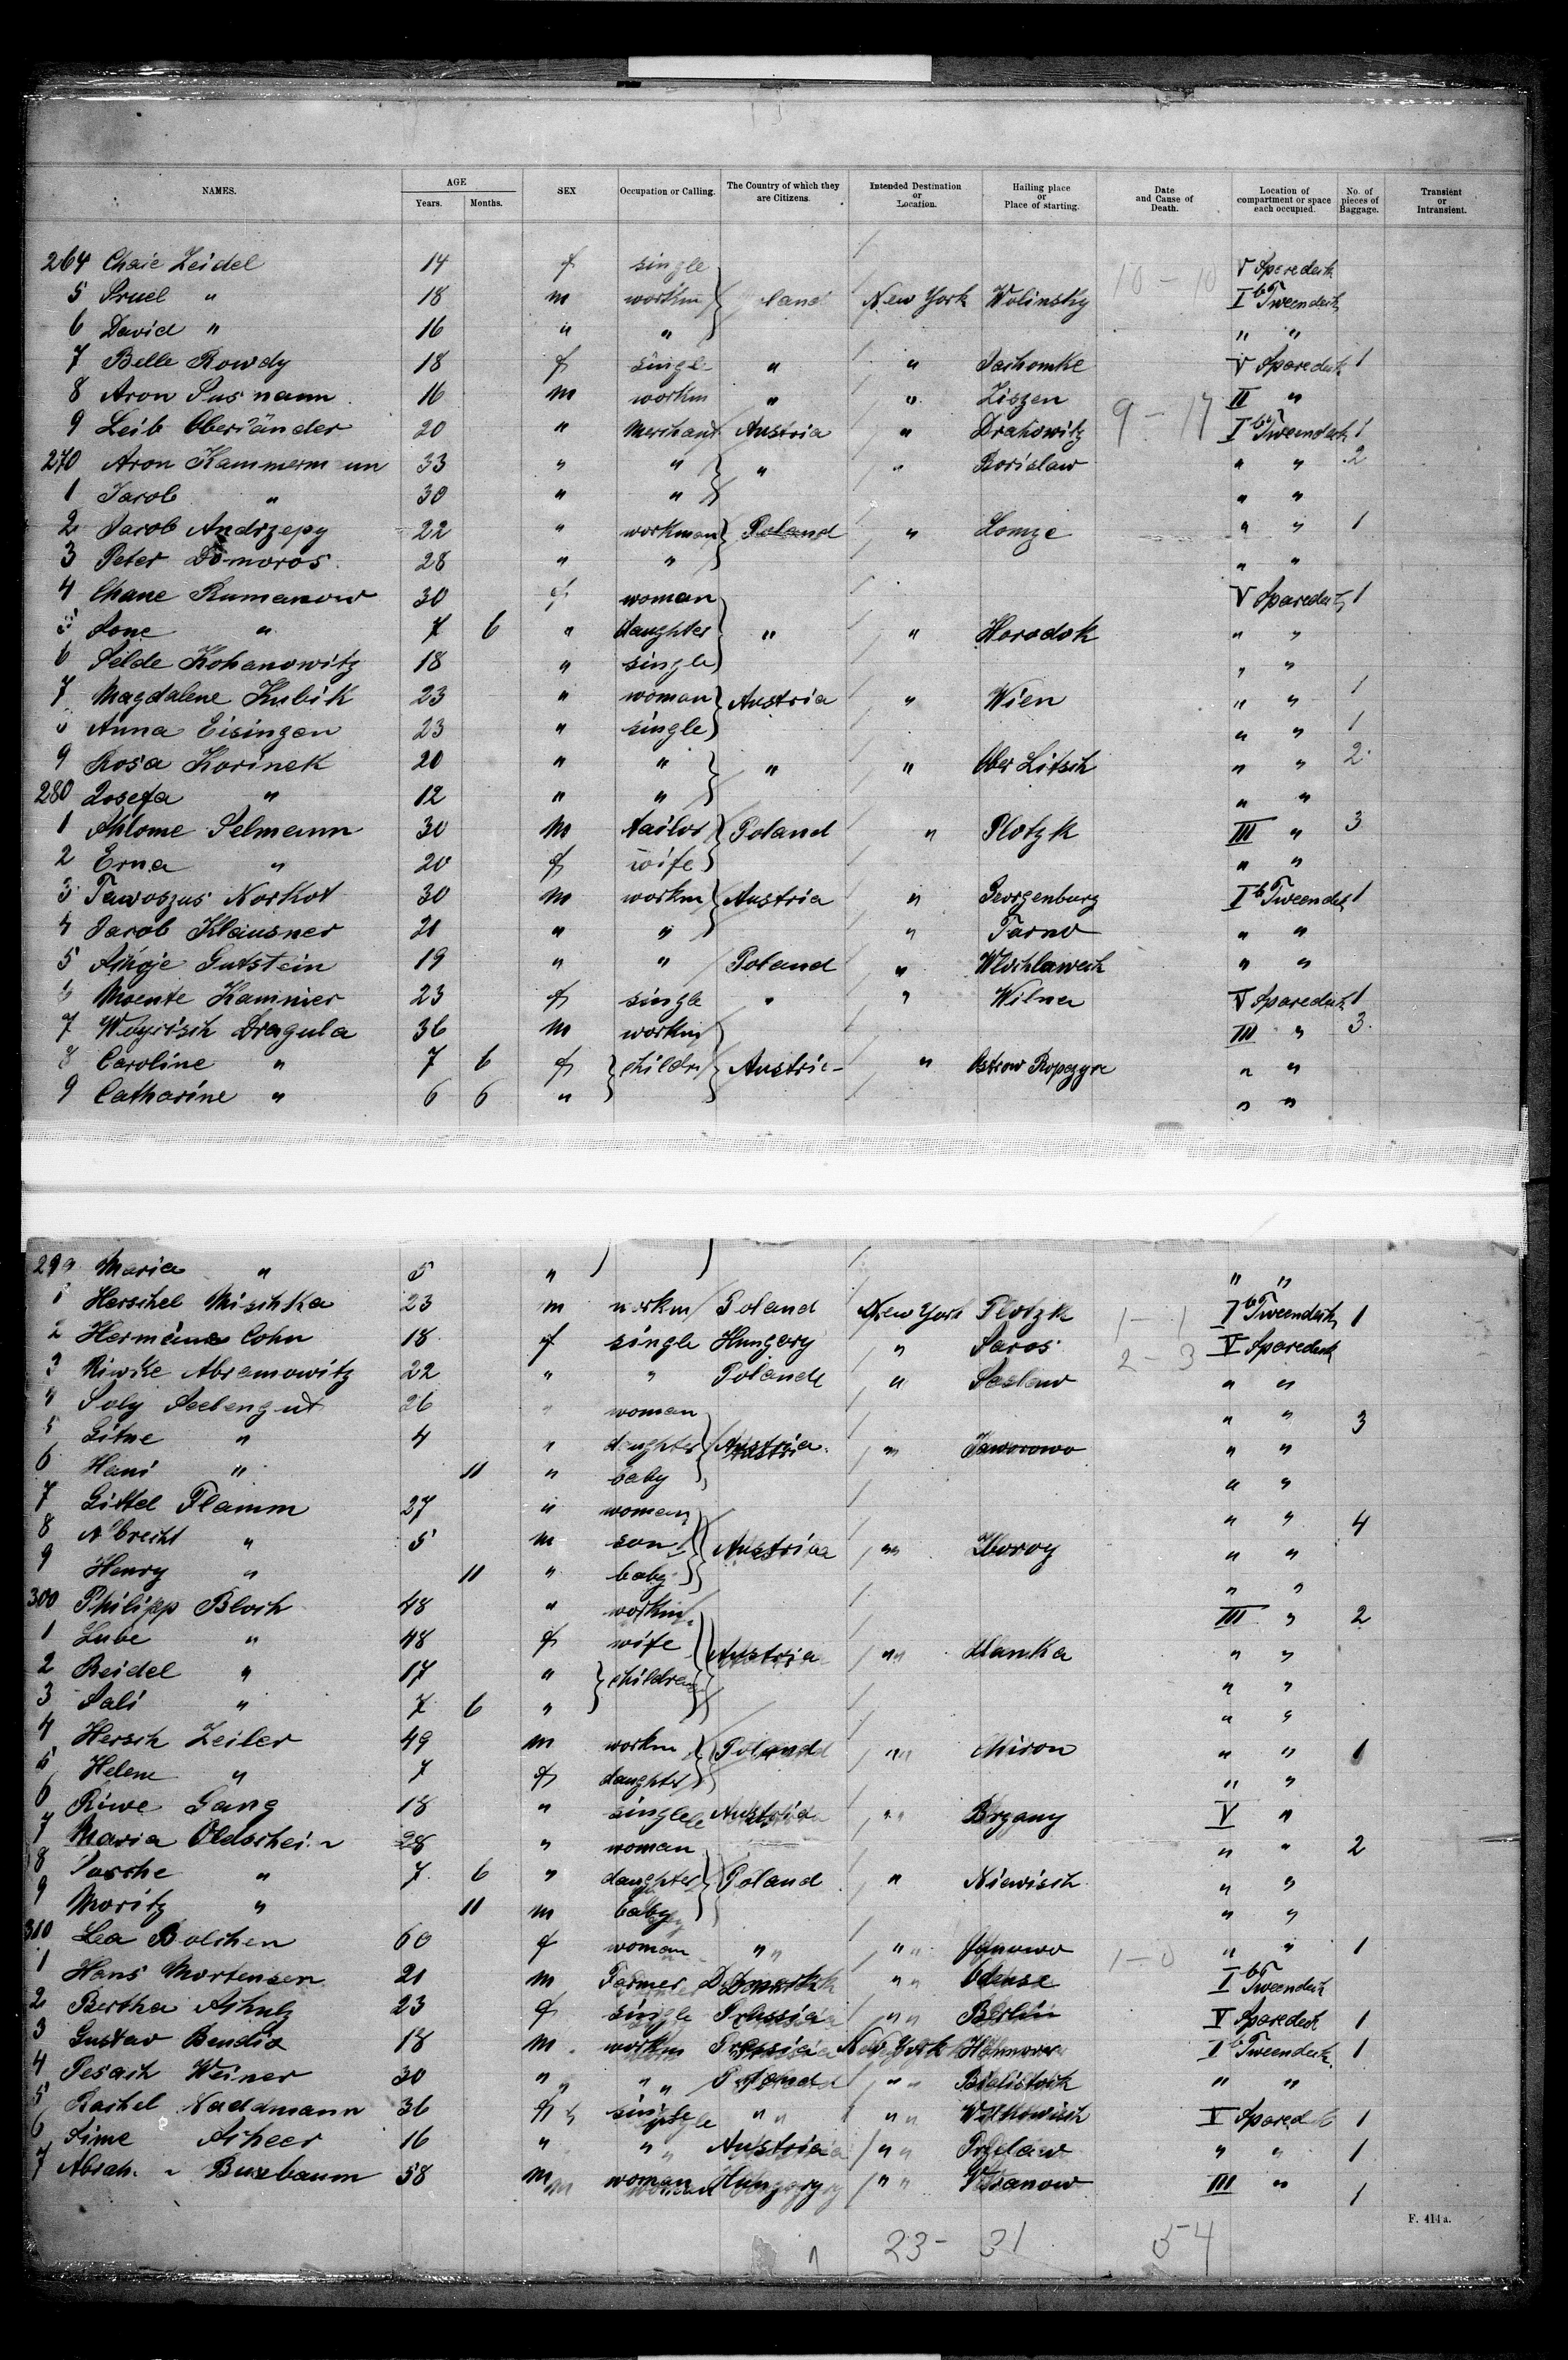 NAMES. AGE Years. Months. SEX Occupation or Calling. The Country of which they are Citizens. Intended Destination or Location. Hailing place or Place of starting. Date and Cause of Death. Location of compartment or space each occupied. No. of pieces of Baggage. Transient or Intransient.
264 Chaie Zeidel 14 f single 10 - 10 V Sparedeck
5 Sruel " 18 m workm land New York Wolinsky I bT Tweendeck
6 David " 16 " " " "
7 Belle Rowdy 18 f single " " V Sparedeck 1
8 Aron 16 m workm " " Liszen II "
9 Leib Oberländer 20 " Merchant Austria " Drahowitz 9 - 17 I bT Tweendeck 1
270 Aron Kammermann 33 " " " " Borislaw " " 2
1 Jacob " 30 " " " "
2 Jacob Andrzepy 22 " workman Poland " Lomze " " 1
3 Peter Domoros 28 " " " "
4 Chane Rumanow 30 f woman V Sparedeck 1
5 Sone " 7 6 " daughter " " Horodok " "
6 Selde Kohanowitz 18 " single " "
7 Magdalene Kubik 23 " woman Austria " Wien " " 1
8 Anna Eisingen 23 " single " " 1
9 Rosa Korinek 20 " " " " Ober Litsch " " 2
280 Josefa " 12 " " " "
1 Schlome Selmann 30 m tailor Poland " Plotzk III " 3
2 Erna " 20 f wife " "
3 Tawoszus Norkot 30 m workm Austria " Georgenburg I bT Tweendeck 1
4 Jacob Klausner 21 " " " Tarno " "
5 Gutstein 19 " " Poland " Wlochlaweck " "
6 Moente Kammer 23 f single " " Wilna V Sparedeck 1
7 Woycisch Dragula 36 m workm III " 3
8 Caroline " 7 6 f childr Austria " Ostrow Ropczyce " "
9 Catharine " 6 6 " " "
290 Maria " 5 " " "
1 Herschel Mischka 23 m workm Poland New York Plotzk 1 - 1 I bT Tweendeck 1
2 Hermine Cohn 18 f single Hungary " Saros 2 - 3 V Sparedeck
3 Riwke Abramowitz 22 " " Poland " Saslaw " "
4 Soly Seelengut 26 " woman " " 3
5 Gitne " 4 " daughter Austria " Jaworowo " "
6 Hani " 11 " baby " "
7 Gittel Flamm 27 " woman " " 4
8 Albrecht " 5 m son Austria " Zboroy " "
9 Henry " 11 " baby " "
300 Philipp Bloch 48 " workm III " 2
1 Lube " 48 f wife Austria " " "
2 Reidel " 17 " children " "
3 Sali " 7 6 " " "
4 Hersch Zeiler 49 m workm Poland " " " 1
5 Helene " 7 f daughter " "
6 Riwe Gang 18 " single Austria " Brzany V "
7 Maria Oldschein 28 " woman " " 2
8 Pasche " 7 6 " daughter Poland " Niewisch " "
9 Moritz " 11 m baby " "
310 Lea Bolchen 60 f woman " " Janowo 1 - 0 " " 1
1 Hans Mortensen 21 m Farmer Denmark " Odense I bT Tweendeck
2 Bertha Schulz 23 f single Prussia " Berlin V Sparedeck 1
3 Gustav Bendix 18 m workm Prussia New York Hannover I bT Tweendeck 1
4 Pesach Weiner 30 " " Poland " Bialistock " "
5 Rachel Naddmann 36 f single " " Wilkowisch V Sparedeck 1
6 Sime Scheer 16 " " Austria " Przelaw " " 1
7 Abrah. Buxbaum 58 m woman Hungary " III " 1
F. 414a.
23 - 31 54